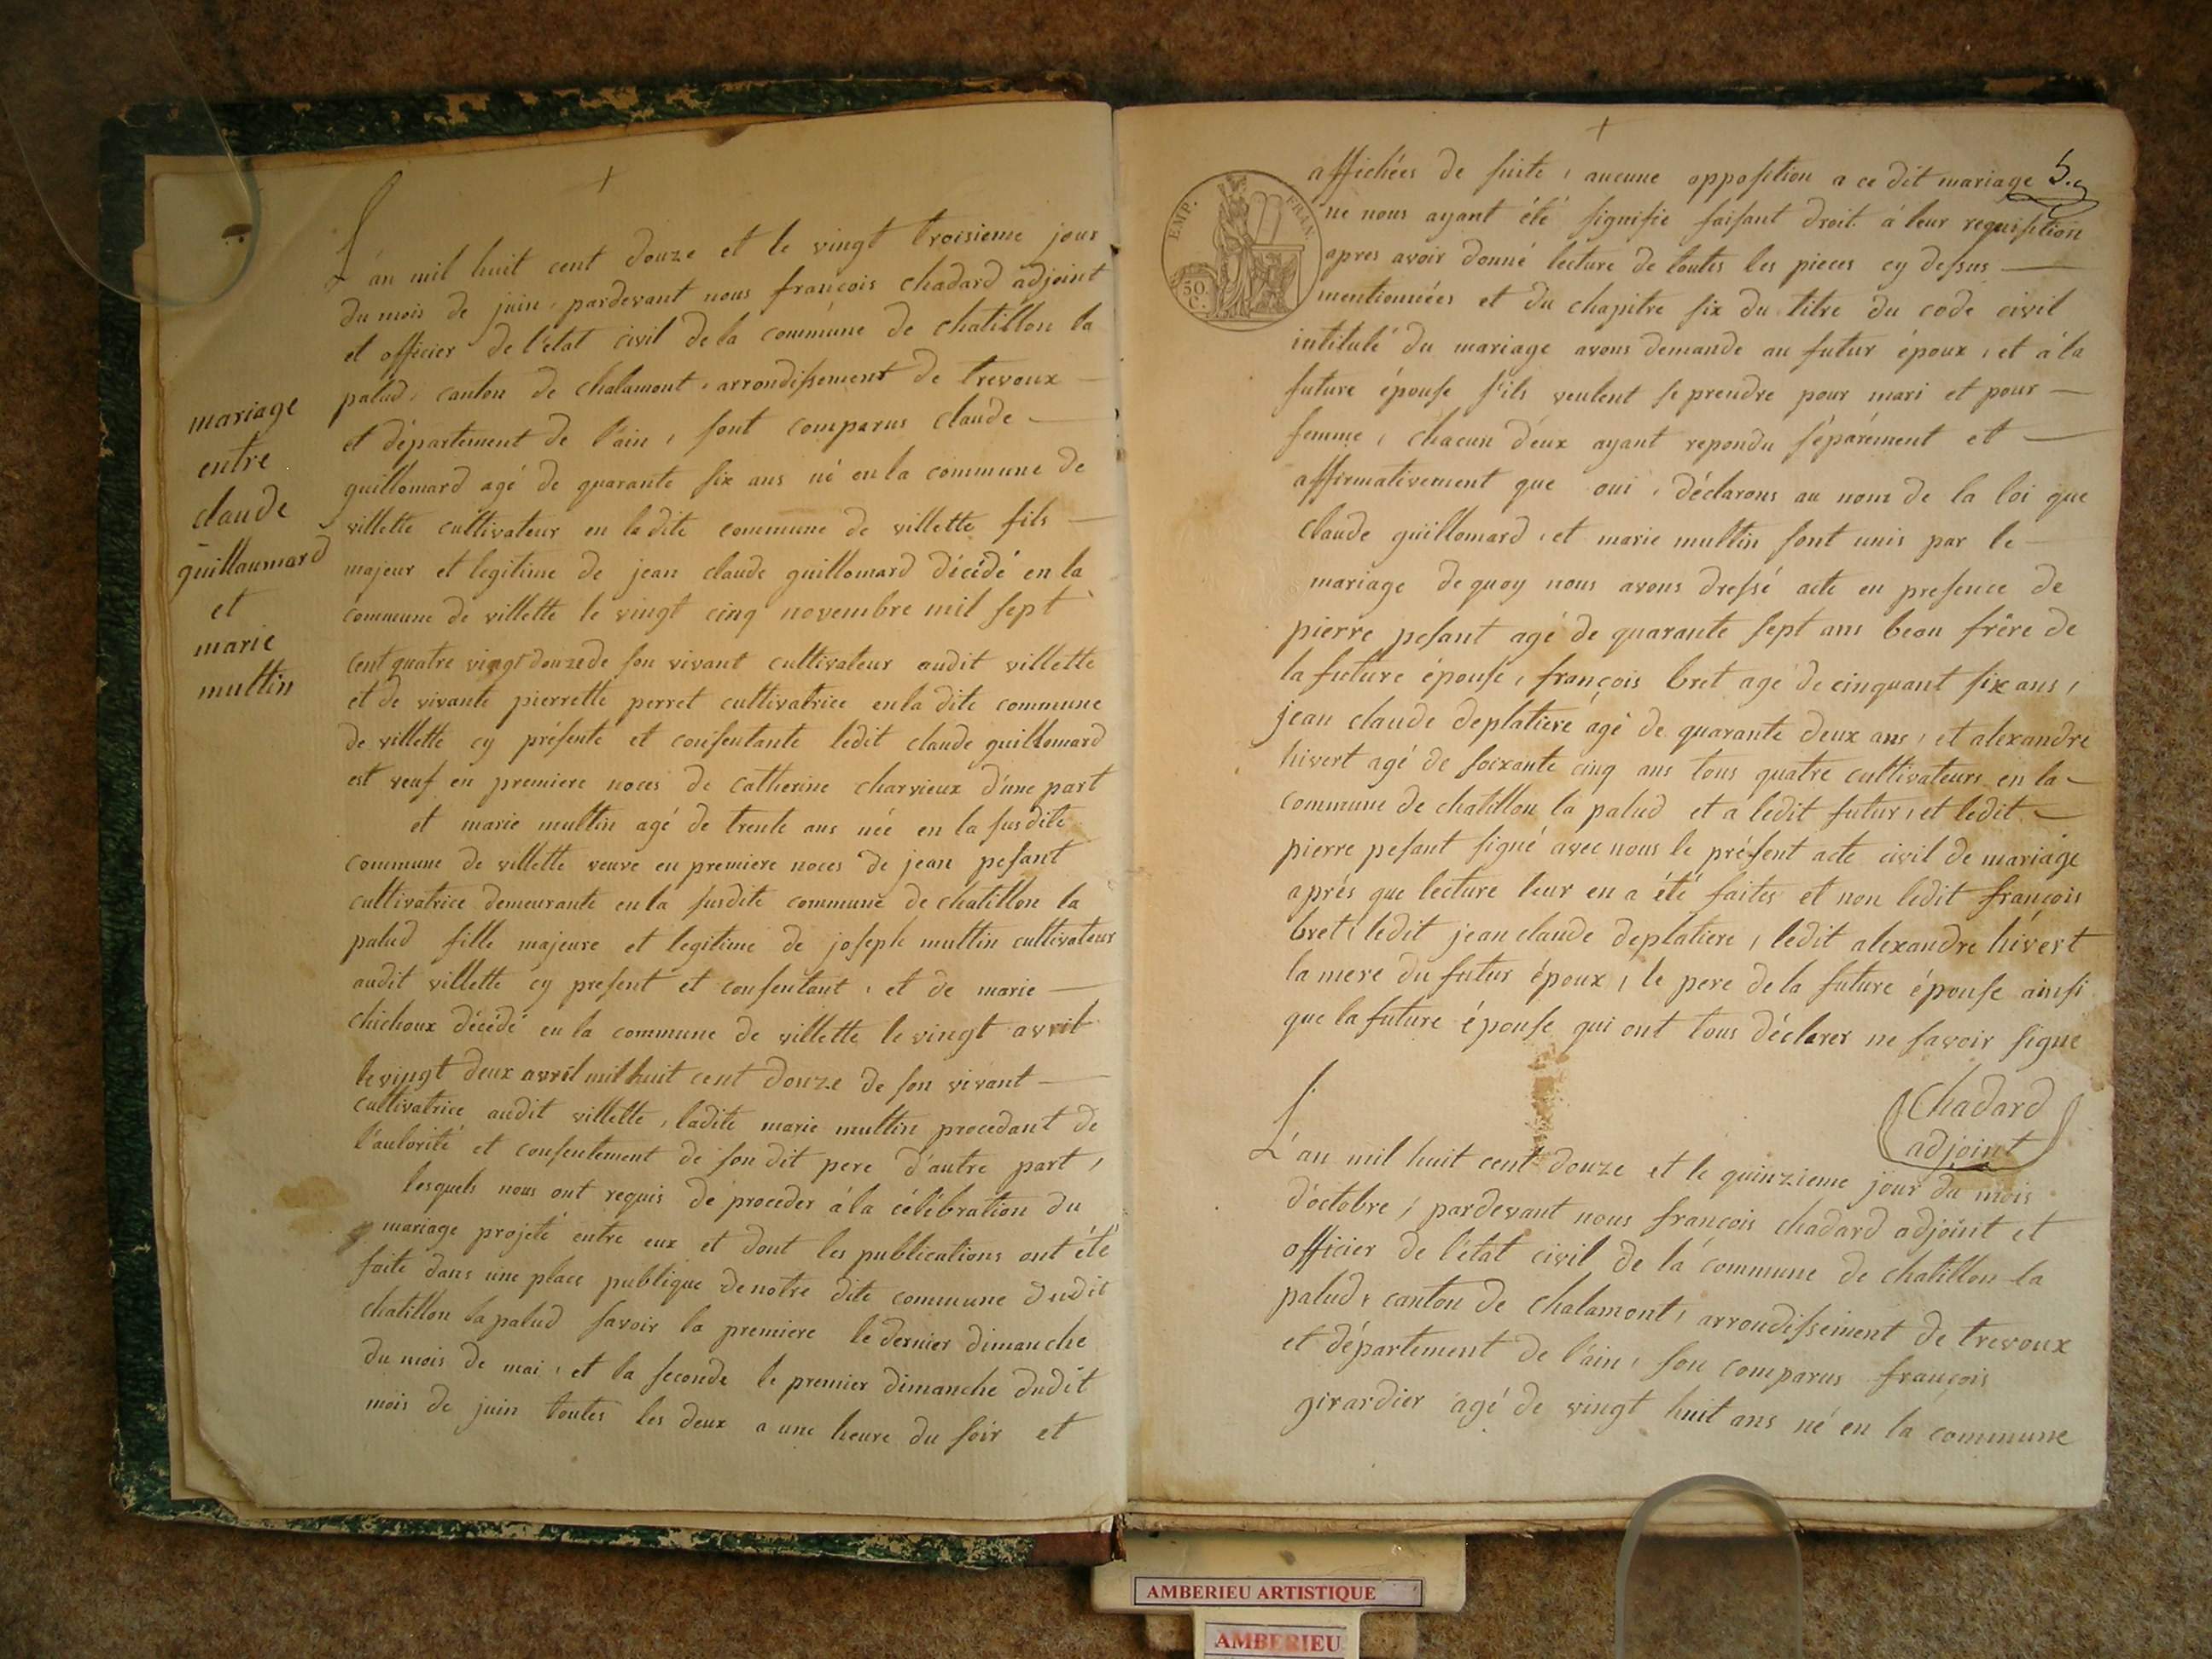 mariage
entre
claude
guillaumard
et
marie
multin
L'an mil huit cent douze et le vingt troisieme jour
du mois de juin, pardevant nous françois chadard adjoint
et officier de l'état civil de la commune de chatillon la
palud, canton de chalamont, arrondissement de trevoux
et département de l'ain, sont comparus claude
guillomard agé de quarante six ans né en la commune de
villette cultivateur en la dite commune de villette fils
majeur et legitime de jean claude guillomard décédé en la
commune de villette le vingt cinq novembre mil sept
cent quatre vingt douze de son vivant cultivateur audit villette
et de vivante pierrette perret cultivatrice en la dite commune
de villette cy présente et consentante ledit claude guillomard
est veuf en premiere noces de catherine charvieux d'une part
et marie multin agé de trente ans née en la susdite
commune de villette veuve en premiere noces de jean pesant
cultivatrice demeurante en la susdite commune de chatillon la
palud fille majeure et legitime de joseph multin cultivateur
audit villette cy present et consentant, et de marie
chichoux décédé en la commune de villette le vingt avril
le vingt deux avril mil huit cent douze de son vivant
cultivatrice audit villette, ladite marie multin procedant de
l'autorité et consentement de son dit pere d'autre part,
lesquels nous ont requis de proceder à la célébration du
mariage projeté entre eux et dont les publications ont été
faite dans une place publique de notre dite commune dudit
chatillon la palud savoir la premiere le dernier dimanche
du mois de mai, et la seconde le premier dimanche dudit
mois de juin toutes les deux a une heure du soir et
5.
EMP. FRAN.
50
C.
affichées de suite, aucune opposition a ce dit mariage
ne nous ayant été signifié faisant droit à leur requisition
apres avoir donné lecture de toutes les pieces cy dessus
mentionnées et du chapitre six du titre du code civil
intitulé du mariage avons demande au futur époux, et à la
future épouse s'ils veulent se prendre pour mari et pour
femme, chacun d'eux ayant repondu séparément et
affirmativement que oui, déclarons au nom de la loi que
claude guillomard, et marie multin sont unis par le
mariage de quoy nous avons dressé acte en presence de
pierre pesant agé de quarante sept ans beau frère de
la future épouse, françois bret agé de cinquant six ans,
jean claude deplatiere agé de quarante deux ans, et alexandre
hivert agé de soixante cinq ans tous quatre cultivateurs en la
commune de chatillon la palud et a ledit futur, et ledit
pierre pesant signé avec nous le présent acte civil de mariage
après que lecture leur en a été faites et non ledit françois
bret, ledit jean claude deplatiere, ledit alexandre hivert
la mere du futur époux, le pere de la future épouse ainsi
que la future épouse qui ont tous déclarer ne savoir signe
Chadard
adjoint
L'an mil huit cent douze et le quinzieme jour du mois
d'octobre, pardevant nous françois chadard adjoint et
officier de l'état civil de la commune de chatillon la
palud, canton de chalamont, arrondissement de trevoux
et département de l'ain, son comparus françois
girardier agé de vingt huit ans né en la commune
AMBERIEU ARTISTIQUE
AMBERIEU